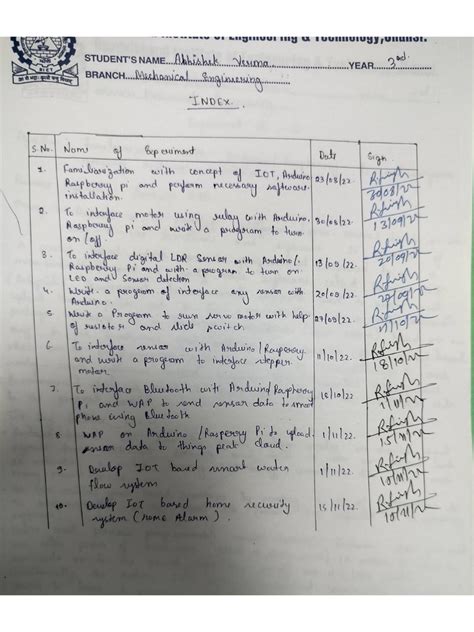 Institute of Engineering & Technology, Jhansi.
STUDENT'S NAME Abhishek Verma YEAR 3rd
BRANCH Mechanical Engineering
INDEX.
S.No. Name of Experiment Date Sign
1. Familiarization with concept of IOT, Arduino 23/08/22
Raspberry pi and perform necessary software
installation. 30/08/22
2. To interface motor using relay with Arduino, 30/08/22.
Raspberry pi and write a program to turn 13/09/22
on/off
3. To interface digital LDR Sensor with Arduino/ 13/09/22.
Raspberry Pi and with a program to turn on 20/09/22
LED and Sensor detection
4. Write a program of interface any sensor with 20/09/22
Arduino. 27/09/22
5. Write a Program to run servo motor with help 27/09/22
of resistor and slide switch 11/10/22
6. To interface sensor with Arduino/Rasperry 11/10/22.
and write a program to interface stepper 18/10/22
motor
7. To interface Bluetooth with Arduino/Raspberry 18/10/22
Pi and WAP to send sensor data to smart
phone using Bluetooth 1/11/22
8. WAP on Arduino /Rasperry Pi to upload 1/11/22.
sensor data to things peak cloud. 15/11/22
9. Develop IOT based smart water 1/11/22
flow system 15/11/22
10. Develop IOT based home security 15/11/22
system (home Alarm). 15/11/22